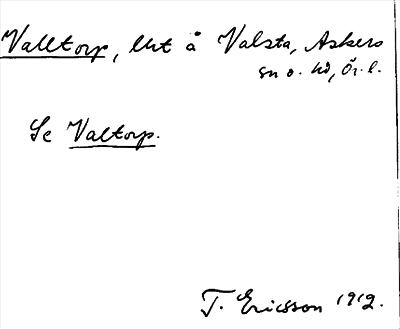 Valltorp, lht å Valsta, Askers
sn o. hd, Ör. l.
Se Valtorp.
T. Ericsson 1912.